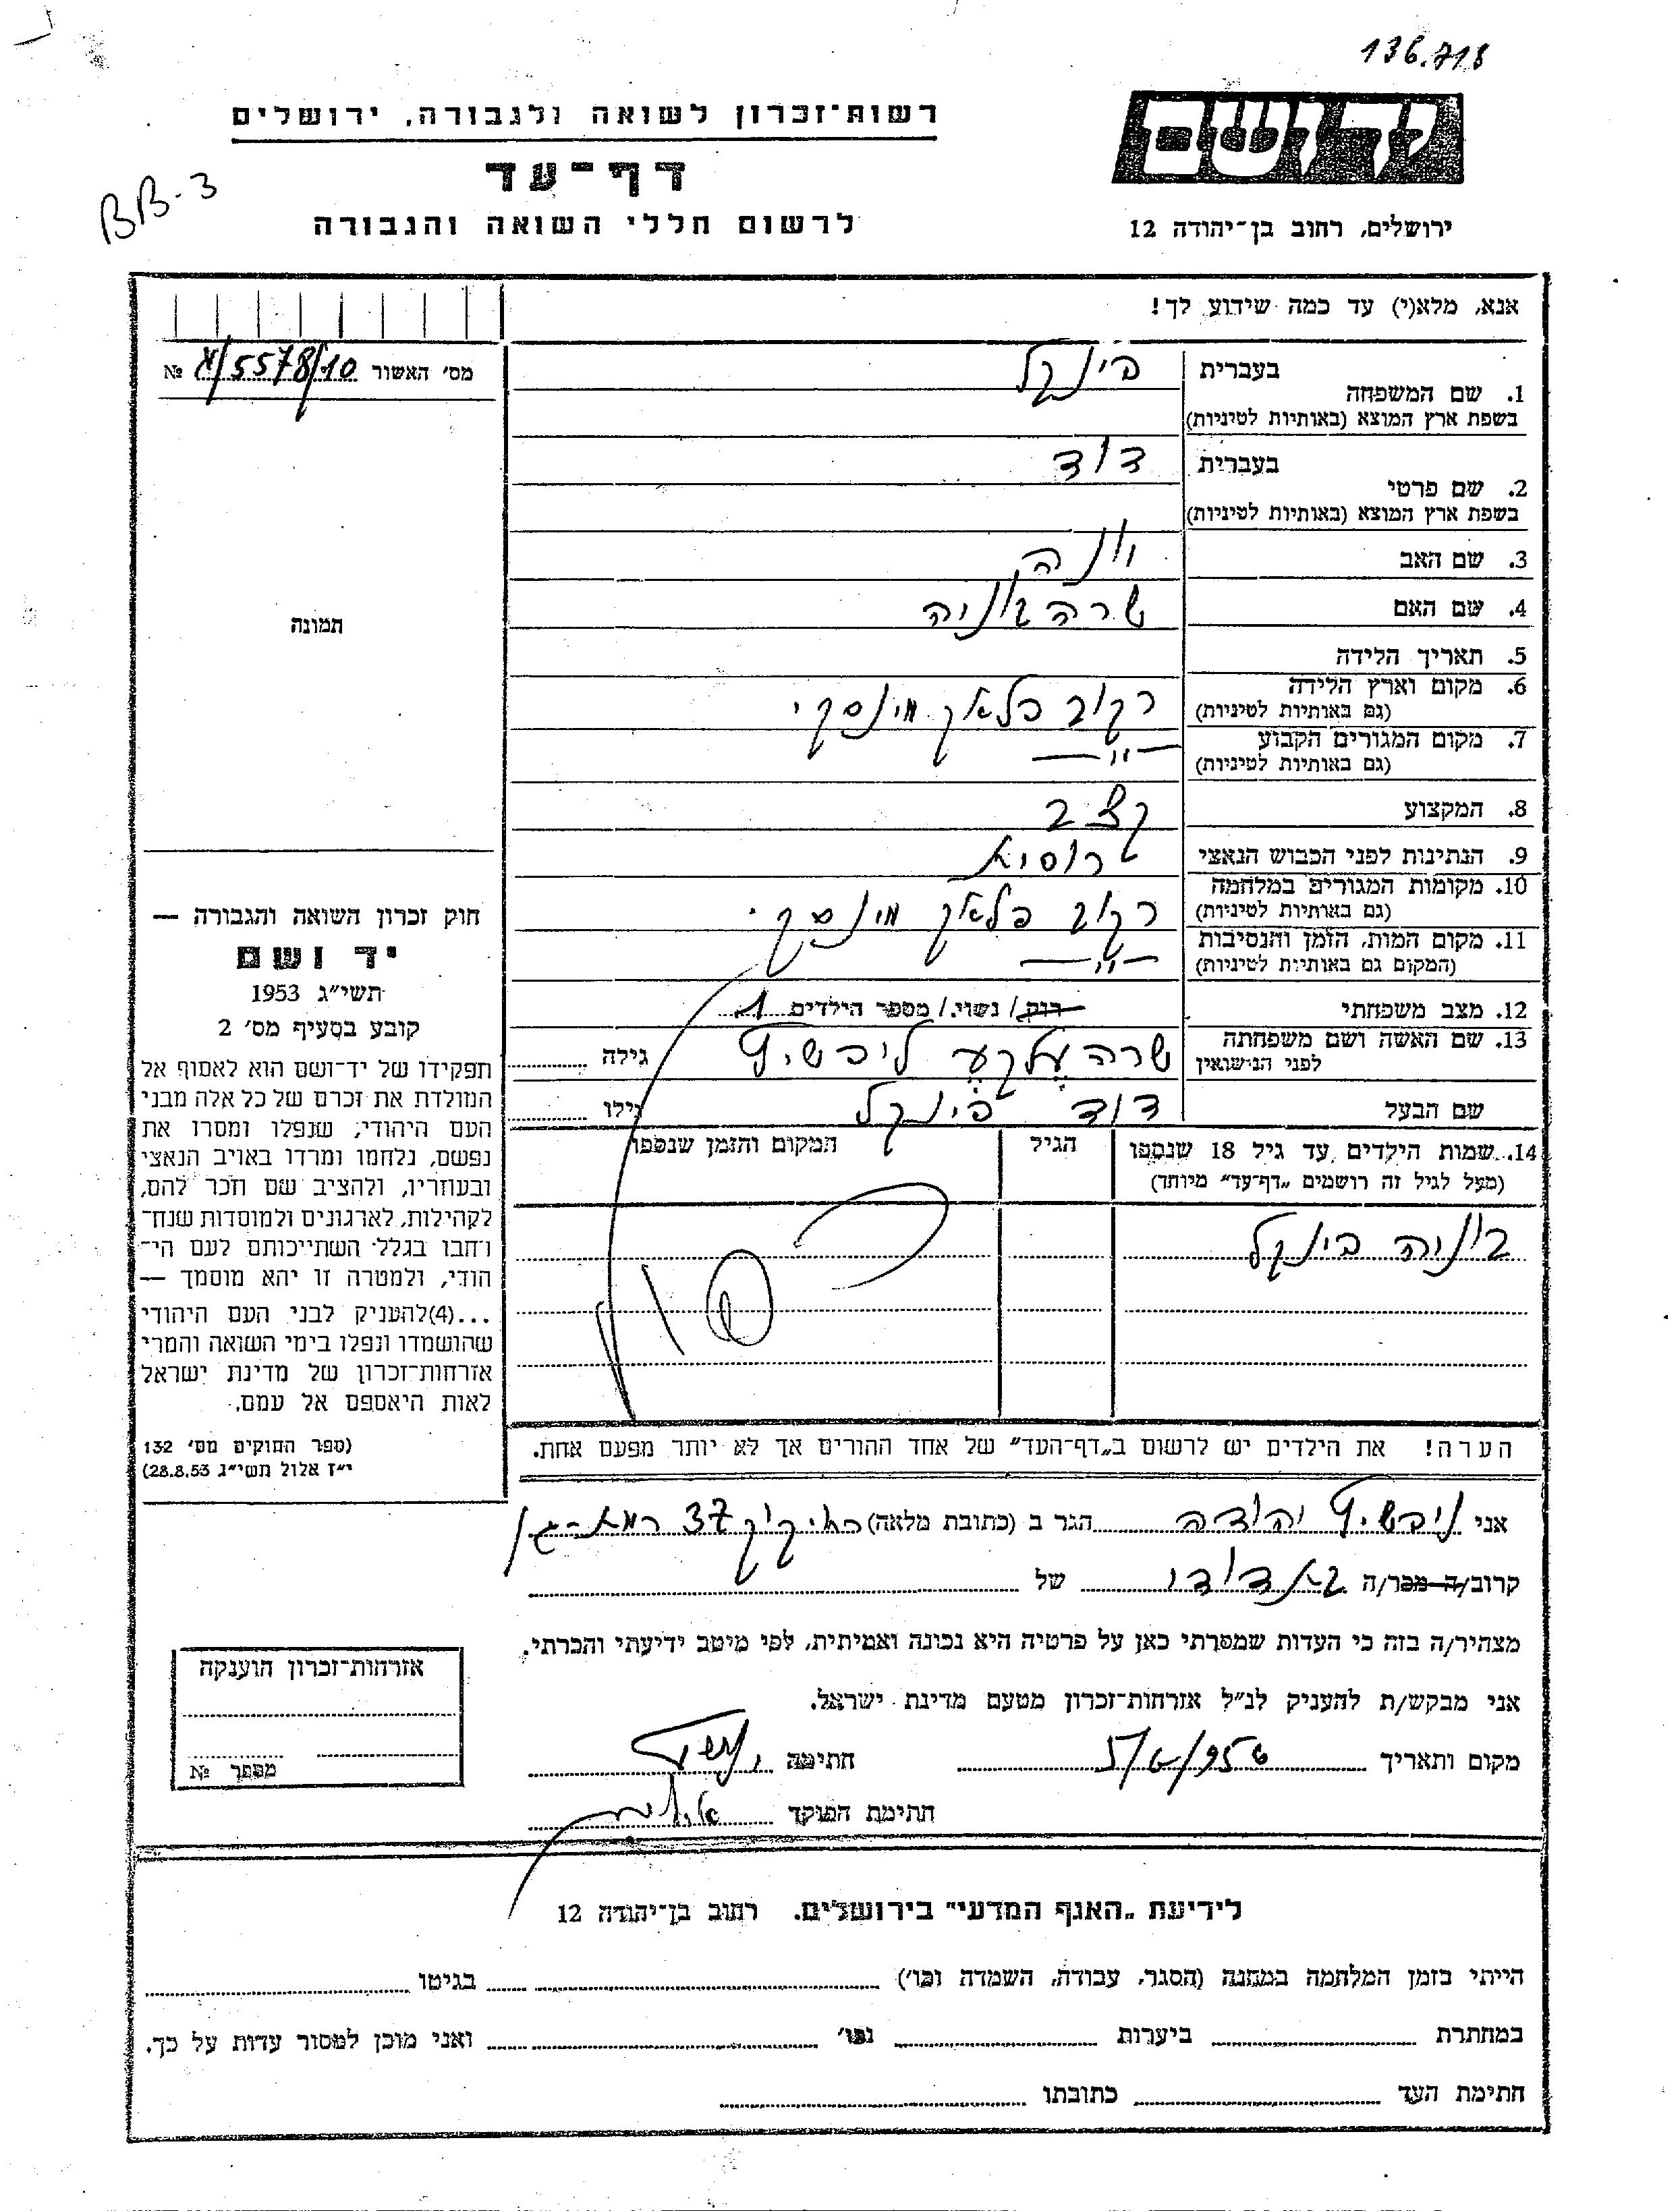 136.718
רשות־זכרון לשואה ולגבורה, ירושלים
יד ושם
דף־עד
BB-3
לרשום חללי השואה והגבורה
ירושלים, רחוב בן־יהודה 12
אנא, מלא(י) עד כמה שידוע לך!
מס' האשור 5578/10 №
1. שם המשפחה
בעברית פינקל
בשפת ארץ המוצא (באותיות לטיניות)
2. שם פרטי
בעברית דוד
בשפת ארץ המוצא (באותיות לטיניות)
3. שם האב יונה
4. שם האם שרה
תמונה
5. תאריך הלידה
6. מקום וארץ הלידה
(גם באותיות לטיניות)
רקוב פלאך מינסקי
7. מקום המגורים הקבוע
(גם באותיות לטיניות)
-"-
8. המקצוע קצב
9. הנתינות לפני הכבוש הנאצי רוסיא
10. מקומות המגורים במלחמה
(גם באותיות לטיניות)
רקוב פלאך מינסקי
11. מקום המות, הזמן והנסיבות
(המקום גם באותיות לטיניות)
-"-
12. מצב משפחתי רוק/ נשוי/ מספר הילדים 1
13. שם האשה ושם משפחתה
לפני הנישואין
שרה עלקע ליבשיץ גילה
שם הבעל דוד פינקל גילו
14. שמות הילדים עד גיל 18 שנספו
(מעל לגיל זה רושמים "דף־עד" מיוחד)
הגיל
המקום והזמן שנספו
פינקל
חוק זכרון השואה והגבורה —
יד ושם
תשי"ג 1953
קובע בסעיף מס' 2
תפקידו של יד־ושם הוא לאסוף אל
המולדת את זכרם של כל אלה מבני
העם היהודי, שנפלו ומסרו את
נפשם, נלחמו ומרדו באויב הנאצי
ובעוזריו, ולהציב שם וזכר להם,
לקהילות, לארגונים ולמוסדות שנח־
רחבו בגלל השתייכותם לעם הי־
הודי, ולמטרה זו יהא מוסמך —
...(4)להעניק לבני העם היהודי
שהושמדו ונפלו בימי השואה והמרי
אזרחות־זכרון של מדינת ישראל
לאות היאספם אל עמם.
(ספר החוקים מס' 132
י"ז אלול תשי"ג 28.8.53)
הערה! את הילדים יש לרשום ב"דף־העד" של אחד ההורים אך לא יותר מפעם אחת.
אני ליבשיץ יהודה הגר ב (כתובת מלאה) ביאליק 37 רמת-גן
קרוב/ה מכר/ה של
מצהיר/ה בזה כי העדות שמסרתי כאן על פרטיה היא נכונה ואמיתית, לפי מיטב ידיעתי והכרתי.
אני מבקש/ת להעניק לנ"ל אזרחות־זכרון מטעם מדינת ישראל.
מקום ותאריך חתימה
חתימת הפוקד
אזרחות־זכרון הוענקה
מספר №
לידיעת "האגף המדעי" בירושלים, רחוב בן־יהודה 12
הייתי בזמן המלחמה במחנה (הסגר, עבודה, השמדה וכו') בגיטו
במחתרת ביערות וכו' ואני מוכן למסור עדות על כך.
חתימת העד כתובתו